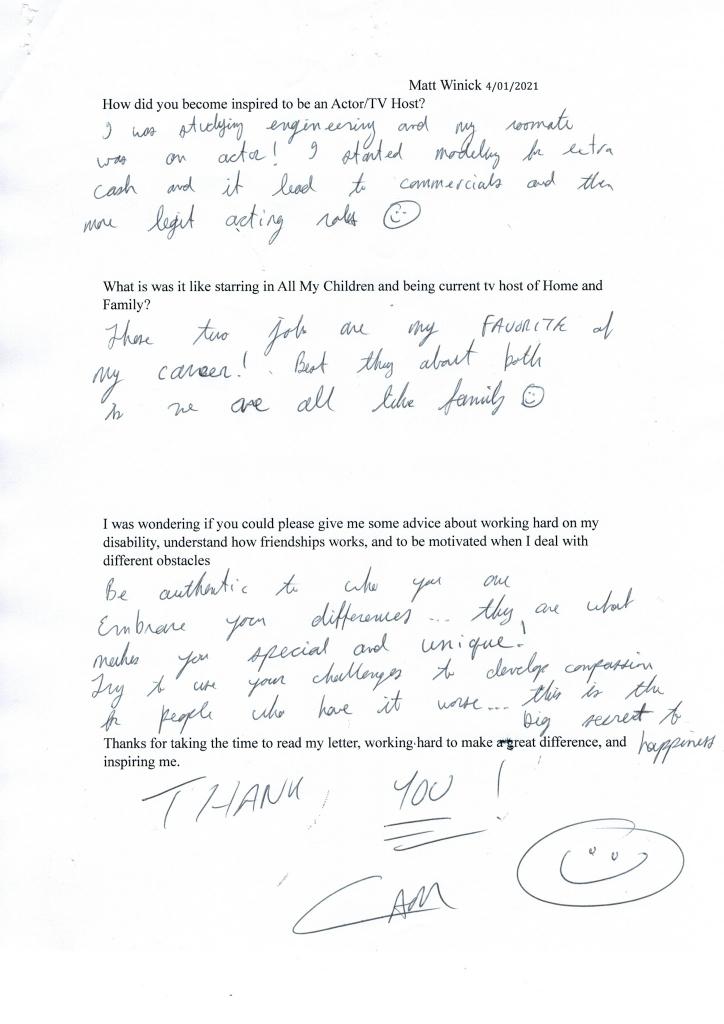 Matt Winick 4/01/2021
How did you become inspired to be an Actor/TV Host?
I was studying engineering and my roomate
was an actor! I started modeling for extra
cash and it lead to commercials and then
more legit acting roles
What is was it like starring in All My Children and being current tv host of Home and
Family?
These two jobs are my FAVORITE of
my career! Best thing about both
is we are all like family
I was wondering if you could please give me some advice about working hard on my
disability, understand how friendships works, and to be motivated when I deal with
different obstacles
Be authentic to who you are
Embrace your differences... they are what
makes you special and unique!
Try to use your challenges to develop compassion
for people who have it worse... this is the
big secret to
happiness
Thanks for taking the time to read my letter, working hard to make a great difference, and
inspiring me.
THANK YOU!
CAM